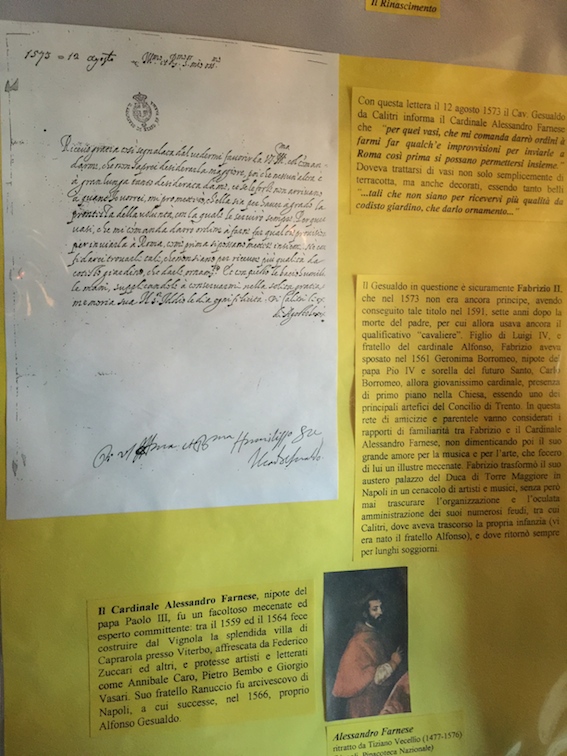 Il Rinascimento
1573 = 12 agosto
darmi, che non saprei desiderarla maggiore, poi che nessuna altra è
à gran lunga tanto desiderata da me, et se le forze non arrivano
à quanto vorrei, mi prometto,
prontezza della volunta, con la quale la serviro sempre.
vasi, che mi comanda darrò ordini à farmi far qualch'e improvisi
per inviarle à Roma, così prima si possano
tali, che non siano per ricever più qualità da
codisto giardino, che darle ornamento. Et con questo le bascio humilmente
le mani, supplicandole à conservarmi nella solita gratia
memoria sua. N. S. Iddio le dia ogni felicità. Di Calitri li xij
di Agosto 1573
Con questa lettera il 12 agosto 1573 il Cav. Gesualdo
da Calitri informa il Cardinale Alessandro Farnese
che "per quei vasi, che mi comanda darrò ordini à
farmi far qualch'e improvvisi per inviarle a
Roma così prima si possano permettersi insieme."
Doveva trattarsi di vasi non solo semplicemente di
terracotta, ma anche decorati, essendo tanto belli
"...tali che non siano per ricevervi più qualità da
codisto giardino, che darlo ornamento..."
Il Gesualdo in questione è sicuramente Fabrizio II,
che nel 1573 non era ancora principe, avendo
conseguito tale titolo nel 1591, sette anni dopo la
morte del padre, per cui allora usava ancora il
qualificativo "cavaliere". Figlio di Luigi IV, e
fratello del cardinale Alfonso, Fabrizio aveva
sposato nel 1561 Geronima Borromeo, nipote del
papa Pio IV e sorella del futuro Santo, Carlo
Borromeo, allora giovanissimo cardinale, presenza
di primo piano nella Chiesa, essendo uno dei
principali artefici del Concilio di Trento. In questa
rete di amicizie e parentele vanno considerati i
rapporti di familiarità tra Fabrizio e il Cardinale
Alessandro Farnese, non dimenticando poi il suo
grande amore per la musica e per l'arte, che fecero
di lui un illustre mecenate. Fabrizio trasformò il suo
austero palazzo del Duca di Torre Maggiore in
Napoli in un cenacolo di artisti e musici, senza però
mai trascurare l'organizzazione e l'oculata
amministrazione dei suoi numerosi feudi, tra cui
Calitri, dove aveva trascorso la propria infanzia (vi
era nato il fratello Alfonso), e dove ritornò sempre
per lunghi soggiorni.
Il Cardinale Alessandro Farnese, nipote del
papa Paolo III, fu un facoltoso mecenate ed
esperto committente: tra il 1559 ed il 1564 fece
costruire dal Vignola la splendida villa di
Caprarola presso Viterbo, affrescata da Federico
Zuccari ed altri, e protesse artisti e letterati
come Annibale Caro, Pietro Bembo e Giorgio
Vasari. Suo fratello Ranuccio fu arcivescovo di
Napoli, a cui successe, nel 1566, proprio
Alfonso Gesualdo.
Alessandro Farnese
ritratto da Tiziano Vecellio (1477-1576)
Pinacoteca Nazionale)